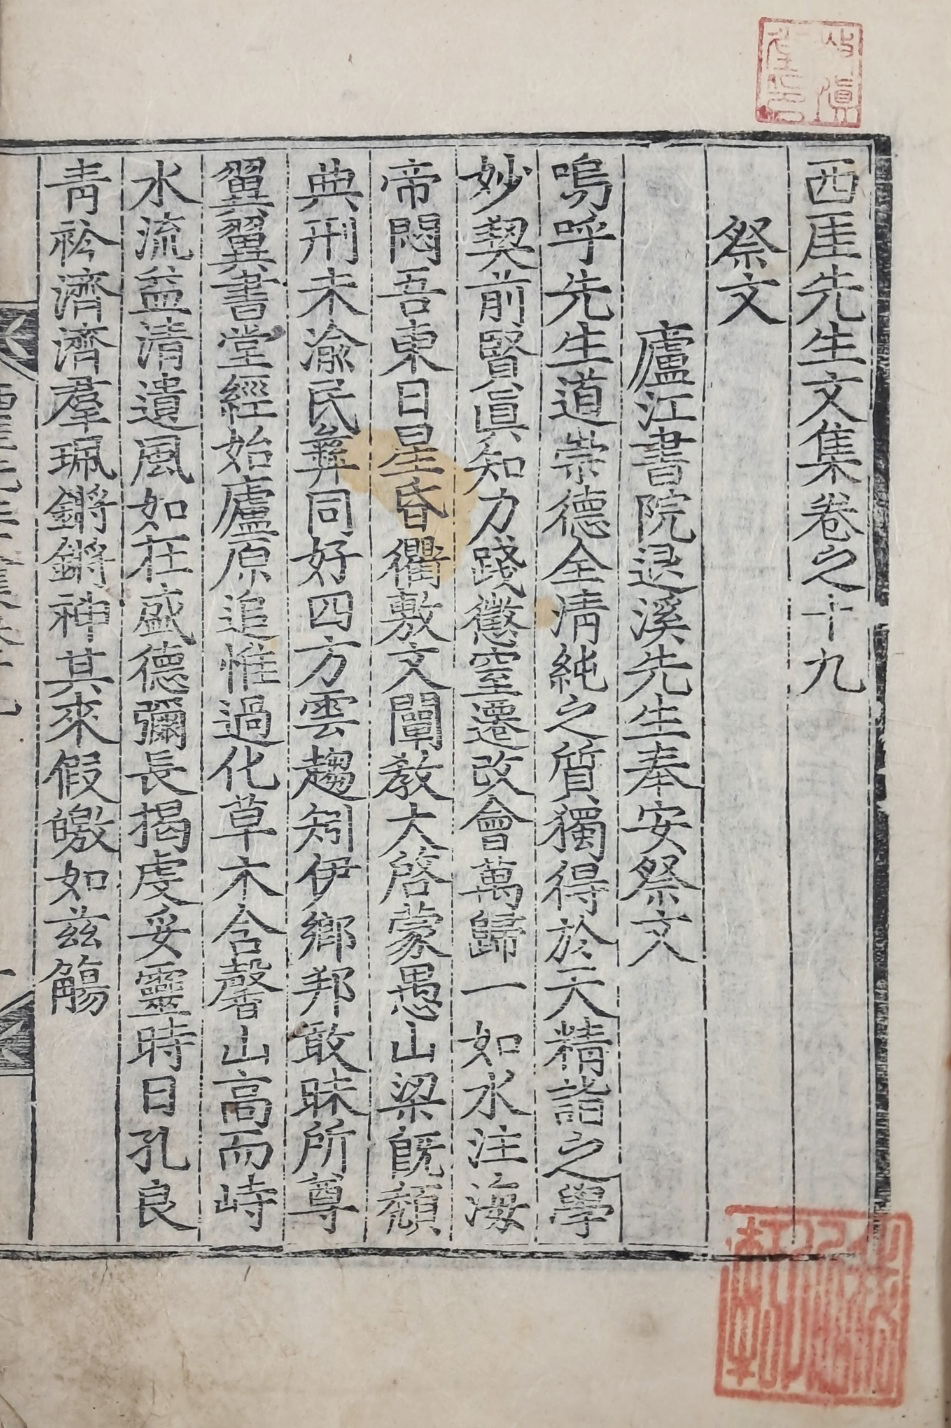 西厓先生文集卷之十九
祭文
廬江書院退溪先生奉安祭文
嗚呼先生道崇德全淸純之質獨得於天精詣之學
妙契前賢眞知力踐懲窒遷改會萬歸一如水注海
帝悶吾東日星昏衢敷文闡敎大啓蒙愚山梁旣頹
典刑未渝民彝同好四方雲趨矧伊鄕邦敢昧所尊
翼翼書堂經始廬原追惟過化草木含馨山高而峙
水流益淸遺風如在盛德彌長揭虔妥靈時日孔良
靑衿濟濟羣珮鏘鏘神其來假皦如玆觴